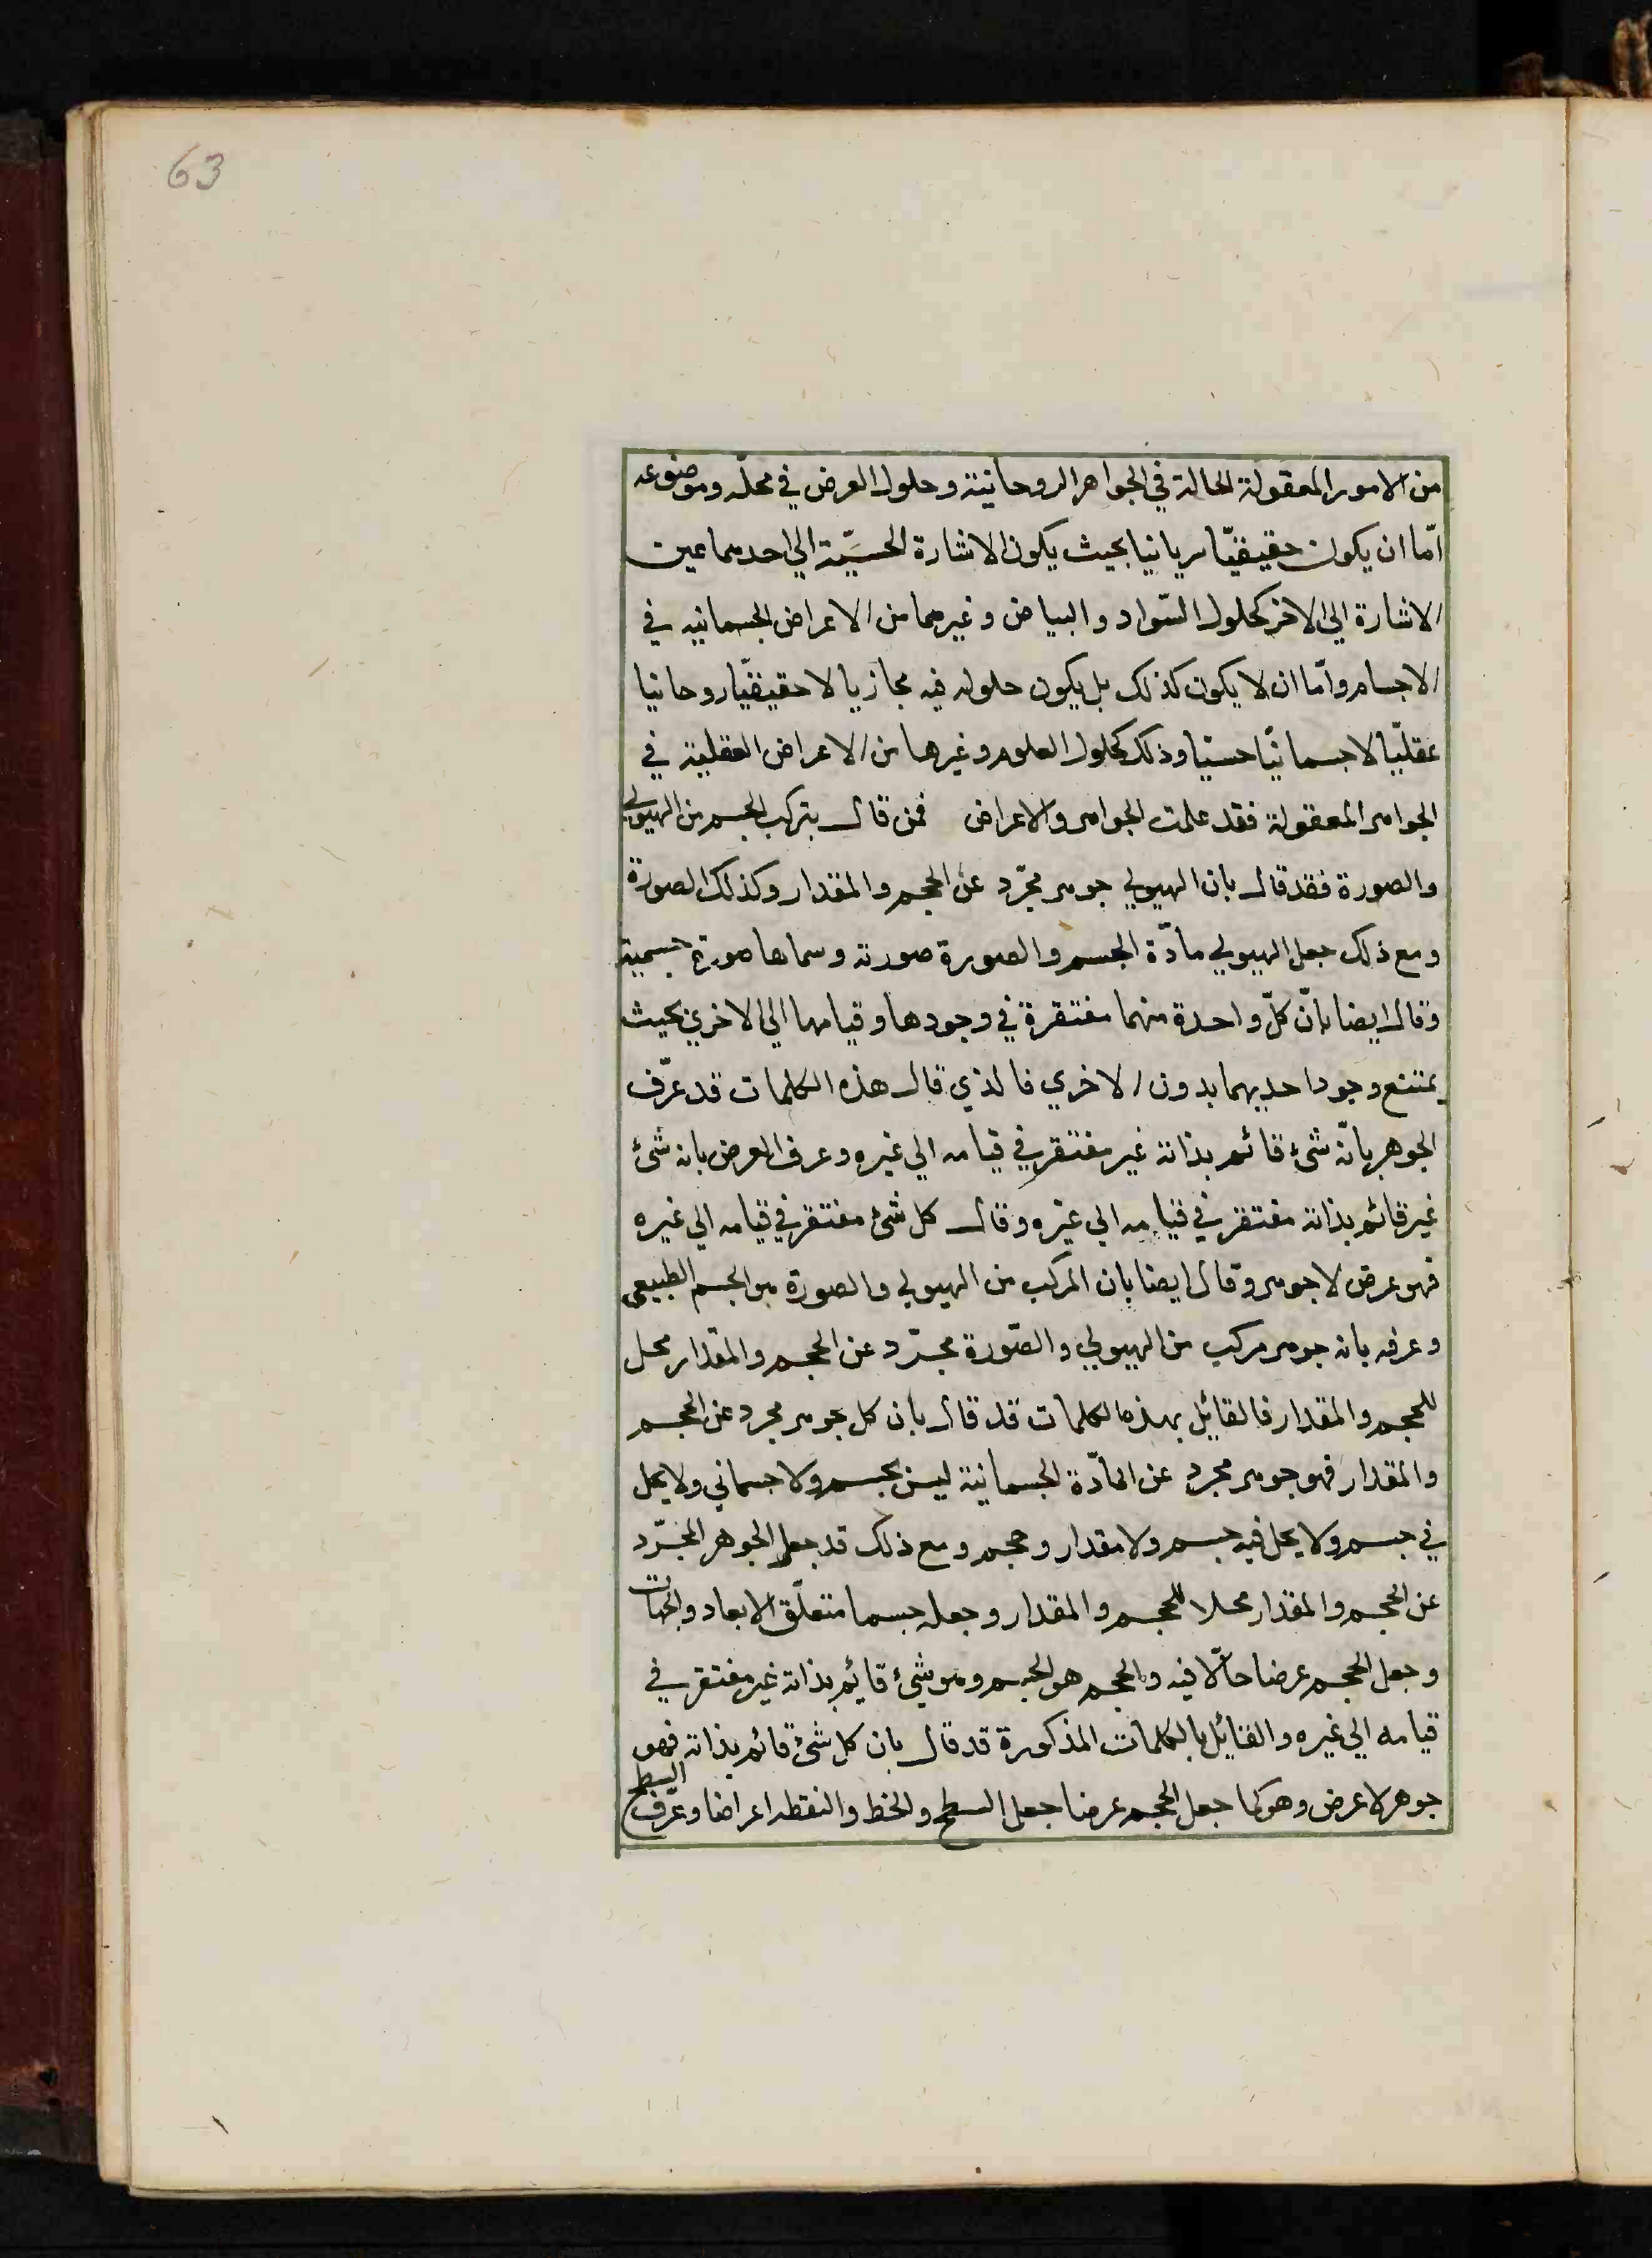 63
من الامور المعقولة الحالة في الجواهر الروحانية وحلول العرض في محلّه وموضوعه
امّا ان يكون حقيقيّا سريانيا بحيث يكون الاشارة الحسيّة الي احدهما عين
الاشارة الي الاخر كحلول السّواد والبياض وغيرهما من الاعراض الجسمانيه في
الاجسام وامّا ان لا يكون كذلك بل يكون حلوله فيه مجازيا لا حقيقيّا روحانيا
عقليّا لا جسمانيّا حسيّا وذلك كحلول العلوم وغيرها من الاعراض العقلية في
الجواهر المعقولة فقد علمت الجواهر والاعراض فمن قال بتركب الجسم من الهيولي
والصورة فقد قال بان الهيولي جوهر مجرّد عن الحجم والمقدار وكذلك الصورة
ومع ذلك جعل الهيولي مادّة الجسم والصورة صورته وسماها صورة جسمية
وقال ايضا بانّ كلّ واحدة منهما مفتقرة في وجودها وقيامها الي الاخري بحيث
يمتنع وجود احديهما بدون الاخري فالذي قال هذه الكلمات قد عرّف
الجوهر بانّه شئ قائم بذاته غير مفتقر في قيامه الي غيره وعرف العرض بانه شئ
غير قائم بذاته مفتقر في قيامه الي غيره وقال كل شئ مفتقر في قيامه الي غيره
فهو عرض لا جوهر وقال ايضا بان المركب من الهيولي والصورة هو الجسم الطبيعي
وعرفه بانه جوهر مركب من الهيولي والصّورة مجرّد عن الحجم والمقدار محل
للحجم والمقدار فالقائل بهذه الكلمات قد قال بان كل جوهر مجرد عن الحجم
والمقدار فهو جوهر مجرد عن المادّة الجسمانية ليس بجسم ولا جسماني ولا يحل
في جسم ولا يحل فيه جسم ولا مقدار وحجم ومع ذلك قد جعل الجوهر المجرّد
عن الحجم والمقدار محلا للحجم والمقدار وجعله جسما متعلّق الابعاد والجهات
وجعل الحجم عرضا حالّا فيه والحجم هو الجسم وهو شيئ قائم بذاته غير مفتقر في
قيامه الي غيره والقائل بالكلمات المذكورة قد قال بان كل شئ قائم بذاته فهو
جوهر لا عرض وهو كما جعل الحجم عرضا جعل السطح والخط والنقطه اعراضا وعرّف السطح